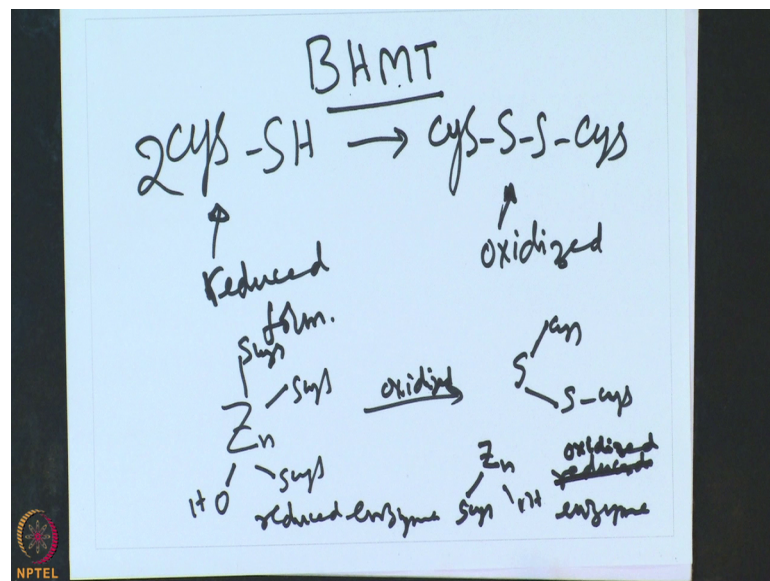 BHMT
2cys-SH → cys-S-S-cys
reduced form.
oxidized
Scys
Zn
Scys
HO
Scys
reduced enzyme
oxidized
cys
S
S-cys
Zn
Scys
oxidized
reduced
enzyme
NPTEL